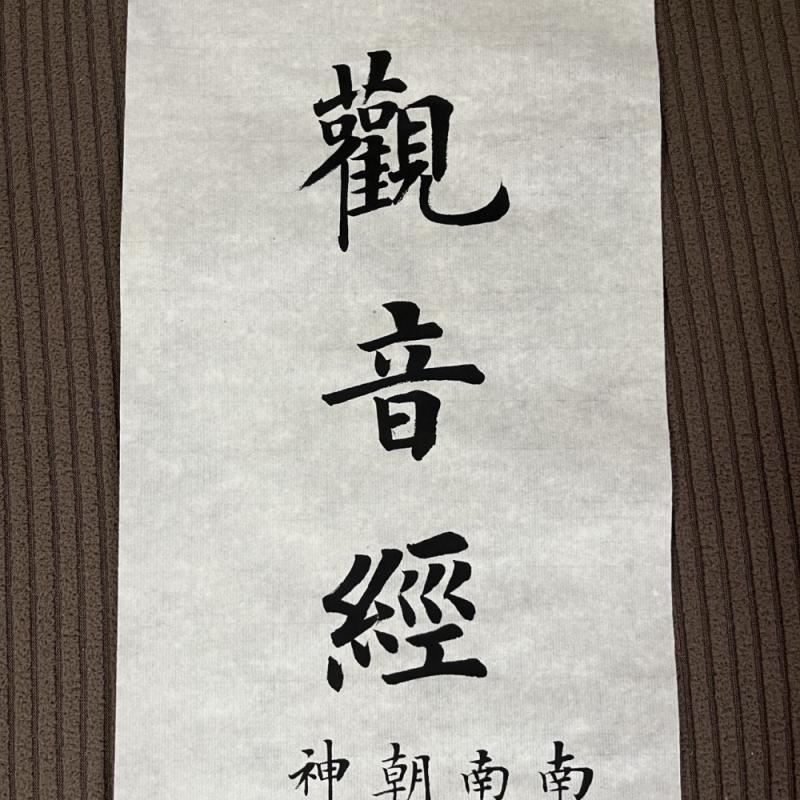 觀音經
南
南
朝
神